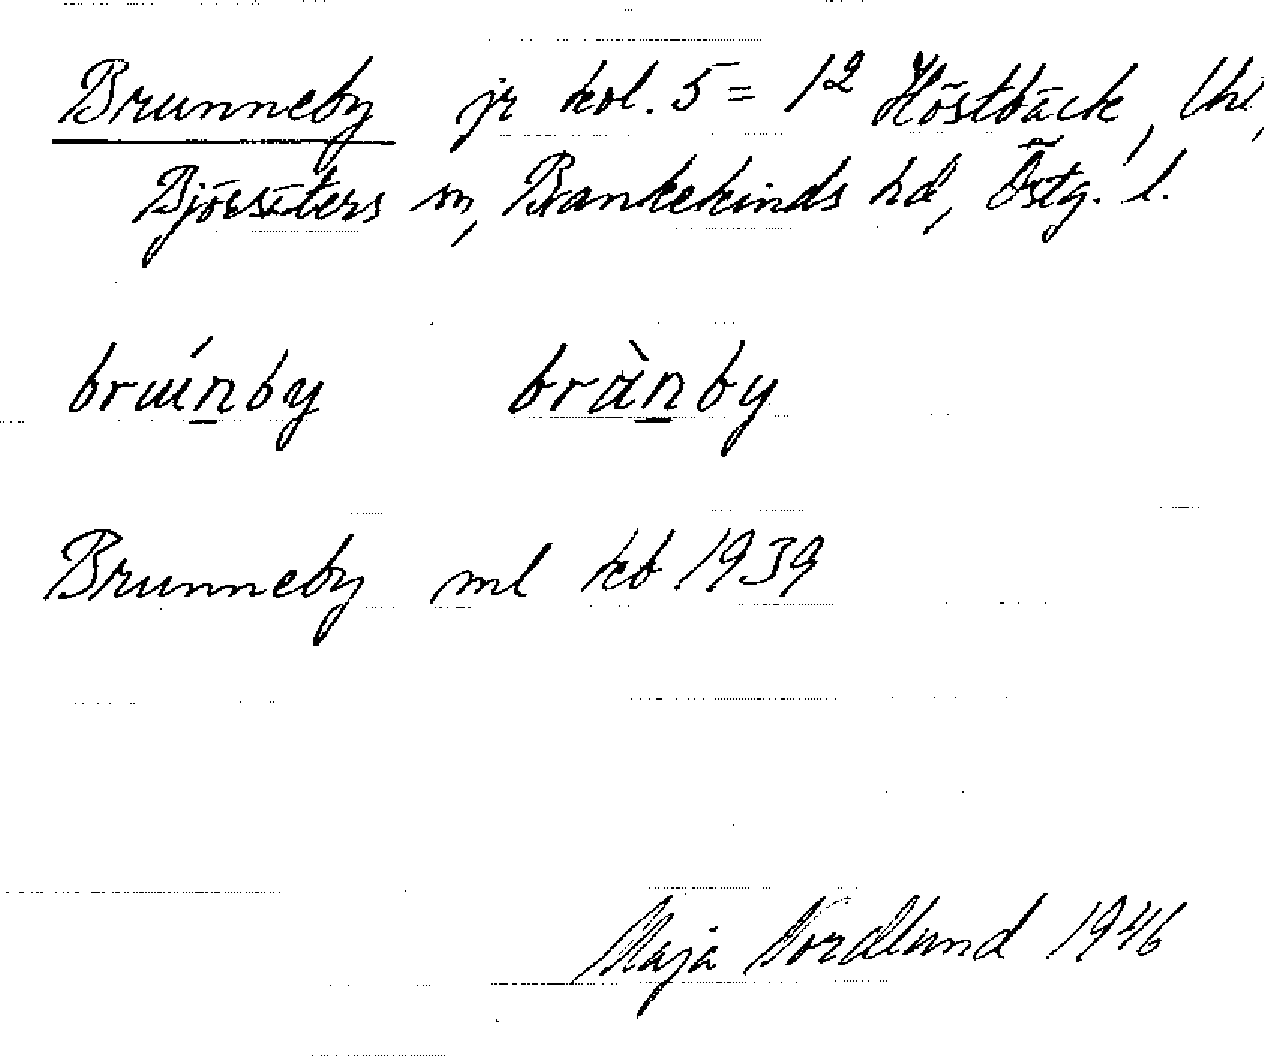 Brunneby jr kol. 5 = 1² Höstbäck, Uhl,
Björsäters sn, Bankekinds hd, Östg. l.
bruńby bràn̲by
Brunneby ml kb 1939
Maja Nordlund 1946